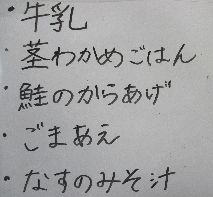 ・牛乳
・茎わかめごはん
・鮭のからあげ
・ごまあえ
・なすのみそ汁